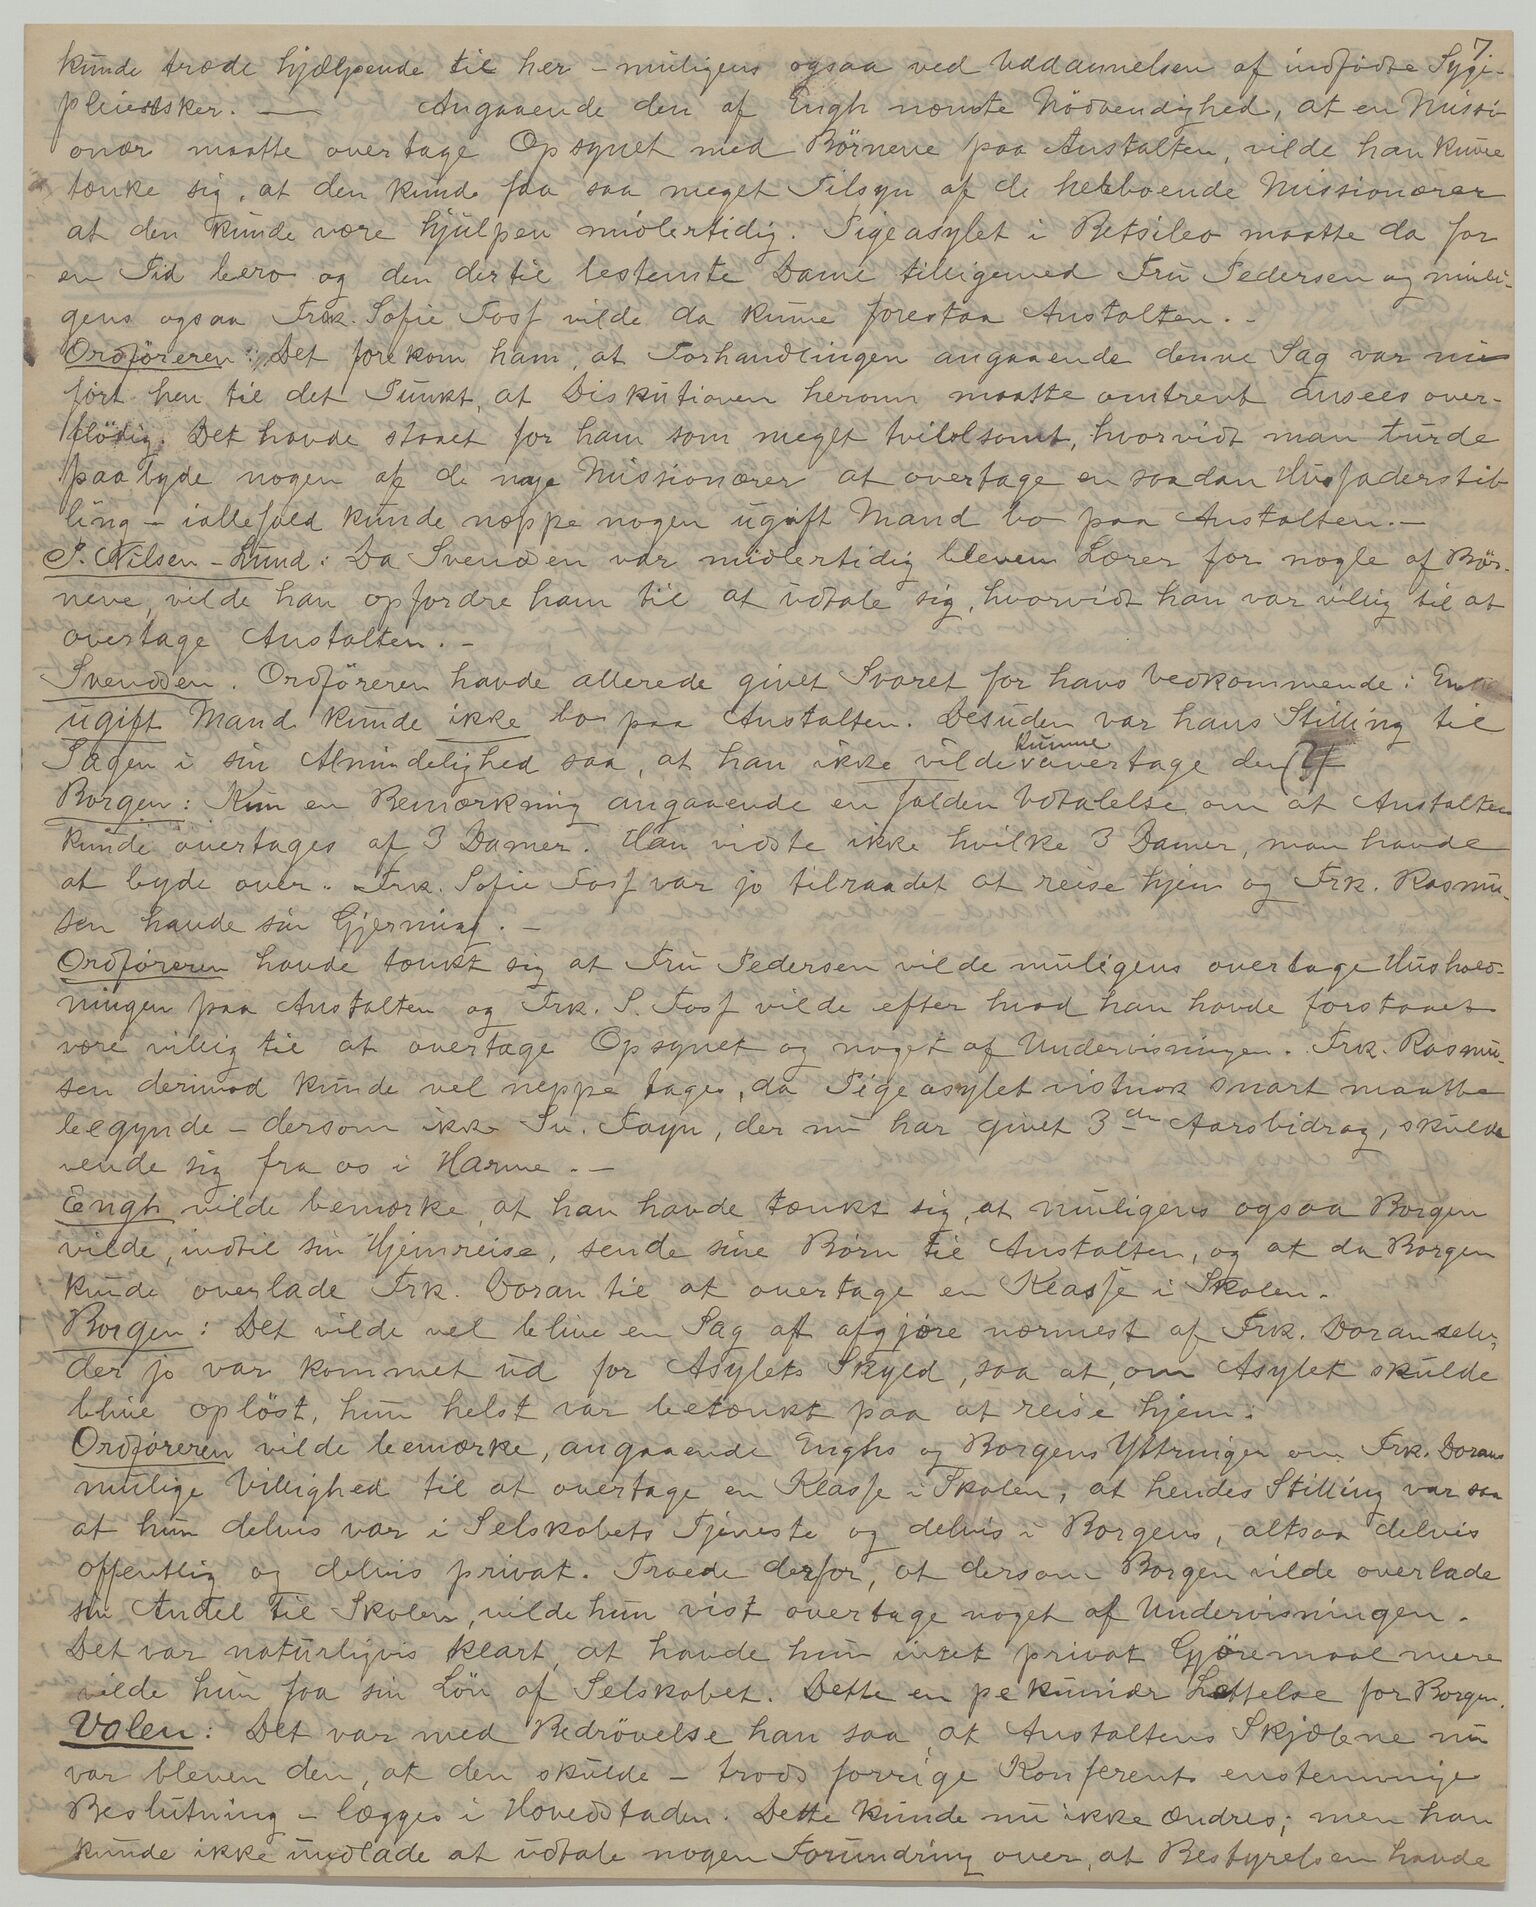 7.
kunde træde hjælpende til her – muligens ogsaa ved Uddannelsen af indfødte Syge-
pleiersker. — Angaaende den af Engh nævnte Nödvendighed, at en Missi-
onær maatte overtage Opsynet med Börnene paa Anstalten, vilde han kune
tænke sig, at den kunde faa saa meget Tilsyn af de heboende Missionærer
at den kunde være hjulpen midlertidig. Pigeasylet i Betsileo maatte da for
en Tid bero og den dertil bestemte Dame tilligemed Fru Pedersen og muli-
gens ogsaa Frk. Sofie Foss vilde da kunne forestaa Anstalten. –
Ordföreren: Det forekom ham, at Forhandlingen angaaende denne Sag var nu
fört hen til det Punkt, at Diskutionen herom maatte omtrent ansees over-
flödig. Det havde staaet for ham som meget tvilsomt, hvorvidt man turde
paabyde nogen af de nye Missionærer at overtage en saadan Husfaderstil-
ling – iallefald kunde neppe nogen ugift Mand bo paa Anstalten. –
P. Nilsen-Lund: Da Svendsen var midlertidig bleven Lærer for nogle af Bör-
nene, vilde han opfordre ham til at udtale sig, hvorvidt han var villig til at
overtage Anstalten. –
Svendsen. Ordföreren havde allerede givet Svaret for hans Vedkommende: En
ugift Mand kunde ikke bo paa Anstalten. Desuden var hans Stilling til
Sagen i sin Almindelighed saa, at han ikke vilde kunne overtage den
Borgen: Kun en Bemærkning angaaende en falden Udtalelse om at Anstalten
kunde overtages af 3 Damer. Han vidste ikke hvilke 3 Damer, man havde
at byde over. Frk. Sofie Foss var jo tilraadet at reise hjem og Frk. Rasmu-
sen havde sin Gjerning. –
Ordföreren havde tænkt sig at Fru Pedersen vilde muligens overtage Hushold-
ningen paa Anstalten og Frk. S. Foss vilde efter hvad han havde forstaaet
være villig til at overtage Opsynet og noget af Undervisningen. Frk. Rasmu-
sen derimod kunde vel neppe tages, da Pigeasylet vistnok snart maatte
begynde – dersom ikke Fayn, der nu har givet 3die Aarsbidrag, skulde
vende sig fra os i Harme. –
Engh vilde bemærke, at han havde tænkt sig, at muligens ogsaa Borgen
vilde, indtil sin Hjemreise, sende sine Børn til Anstalten, og at da Borgen
kunde overlade Frk. Doran til at overtage en Klasse i Skolen.
Borgen: Det vilde vel blive en Sag at afgjøre nærmest af Frk. Doran selv,
der jo var kommet ud for Asylets Skyld, saa at, om Asylet skulde
blive oplöst, hun helst var betænkt paa at reise hjem.
Ordføreren vilde bemærke, angaaende Enghs og Borgens Yttringer om Frk. Dorans
mulige Villighed til at overtage en Klasse i Skolen, at hendes Stilling var saa
at hun delvis var i Selskabets Tjeneste og delvis i Borgens, altsaa delvis
offentlig og delvis privat. Troede derfor, at dersom Borgen vilde overlade
sin Andel til Skolen, vilde hun vist overtage noget af Undervisningen.
Det var naturligvis klart, at havde hun intet privat Gjöremaal mere
vilde hun faa sin Lön af Selskabet. Dette en pekuniær Lettelse for Borgen.
Valen: Det var med Bedrövelse han saa, at Anstaltens Skjæbne nu
var bleven den, at den skulde – trods forrige Konferents enstemmige
Beslutning – lægges i Hovedstaden. Dette kunde nu ikke ændres; men han
kunde ikke undlade at udtale nogen Forundring over, at Bestyrelsen havde